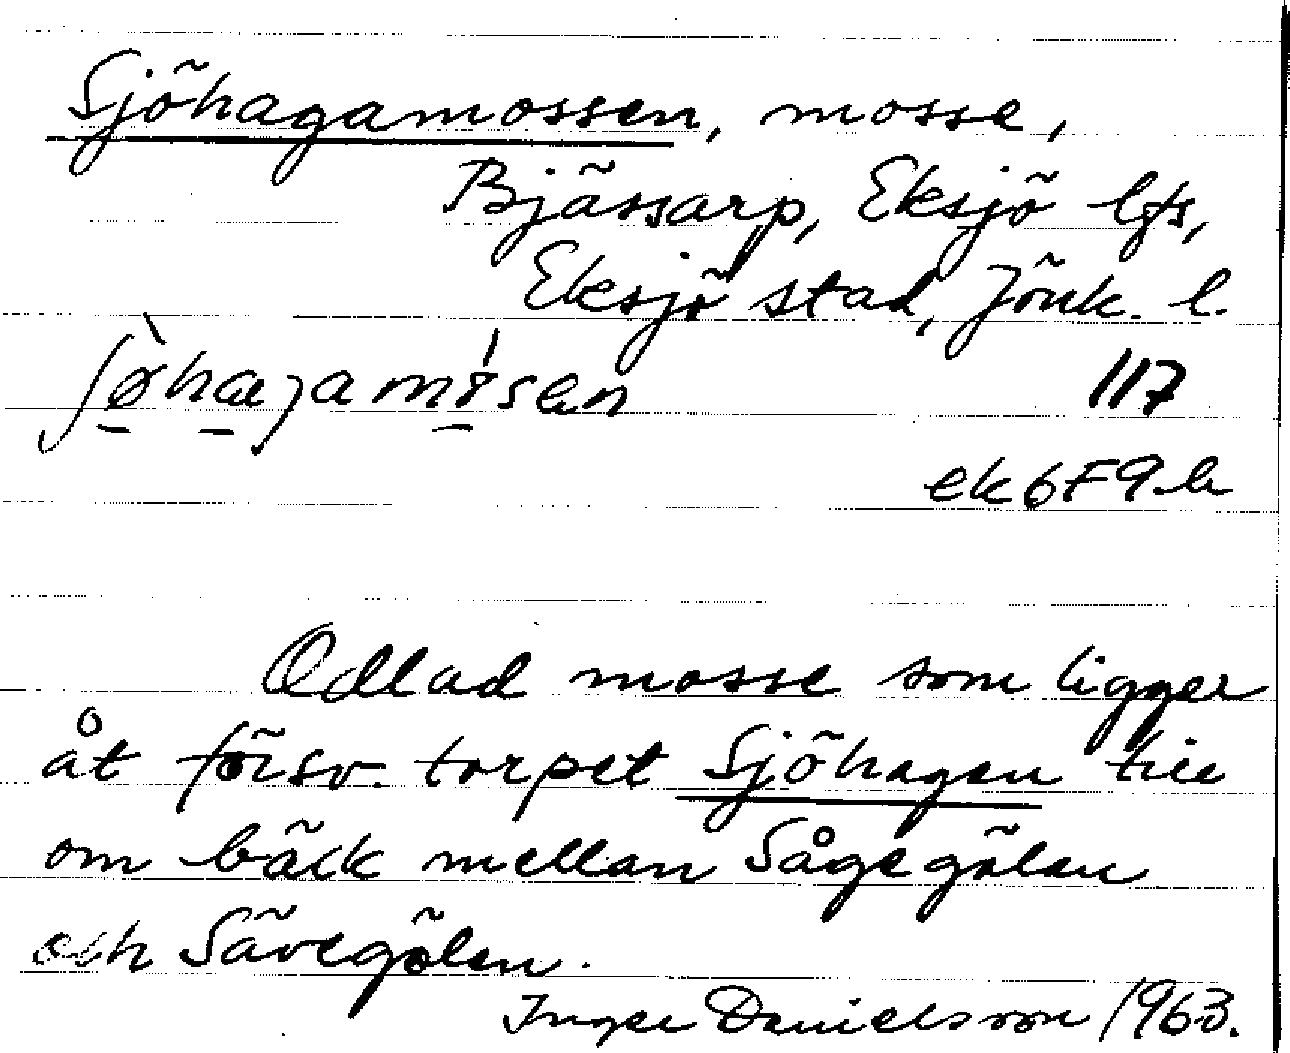 Sjöhagamossen, mosse,
Bjässarp, Eksjö lfs,
Eksjö stad, Jönk. l.
117
ek 6F9b
Odlad mosse som ligger
åt försv. torpet Sjöhagen till
om bäck mellan Sågegölen
och Sävegölen.
Inger Danielsson 1963.